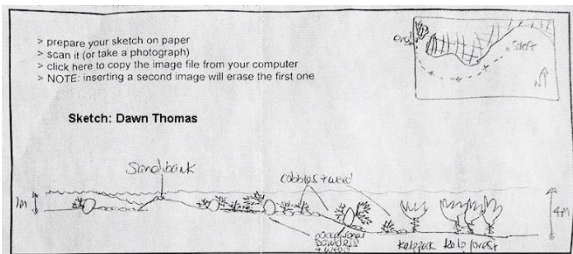 > prepare your sketch on paper
> scan it (or take a photograph)
> click here to copy the image file from your computer
> NOTE: inserting a second image will erase the first one
end
start
N
Sketch: Dawn Thomas
Sandbank
cobbles + weed
1m
4m
occasional
boulders
+ weed
kelp park kelp forest